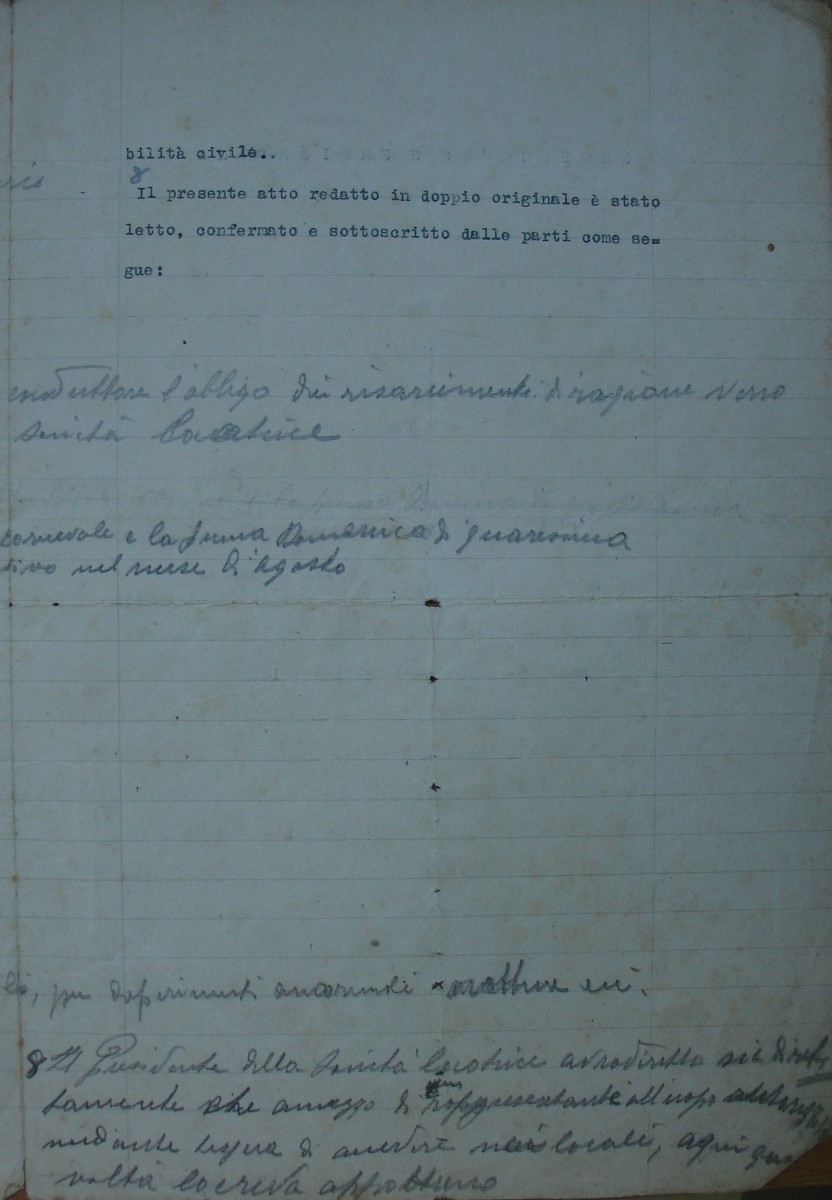 bilità civile..
8
Il presente atto redatto in doppio originale è stato
letto, confermato e sottoscritto dalle parti come se=
gue:
conduttore l'obbligo dei risarcimenti di ragione verso
locatrice
carnevale e la prima Domenica di quaresima
tivo nel mese di agosto
per
8 Il Presidente della Società locatrice avrà diretto sia diret
tamente che a mezzo di rappresentante all'uopo
mediante di accedere nei locali, ogni qual
volta lo creda opportuno